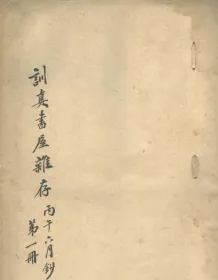 訓真書屋雜存 丙午六月鈔
第一冊